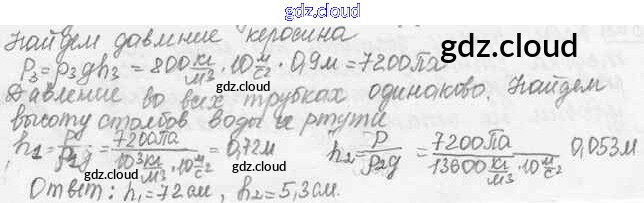 gdz.cloud
Найдем давление керосина
P₃=ρ₃gh₃ = 800 кг/м³ · 10 м/с² · 0,9м = 7200 Па
gdz.cloud
Давление во всех трубках одинаково. Найдем
высоту столбов воды и ртути
h₁ = P/ρ₁g = 7200Па/10³ кг/м³ · 10 м/с² = 0,72м h₂ = P/ρ₂g = 7200Па/13600 кг/м³ · 10 м/с² 0,053м
gdz.cloud gdz.cloud
Ответ: h₁=72см, h₂=5,3см.